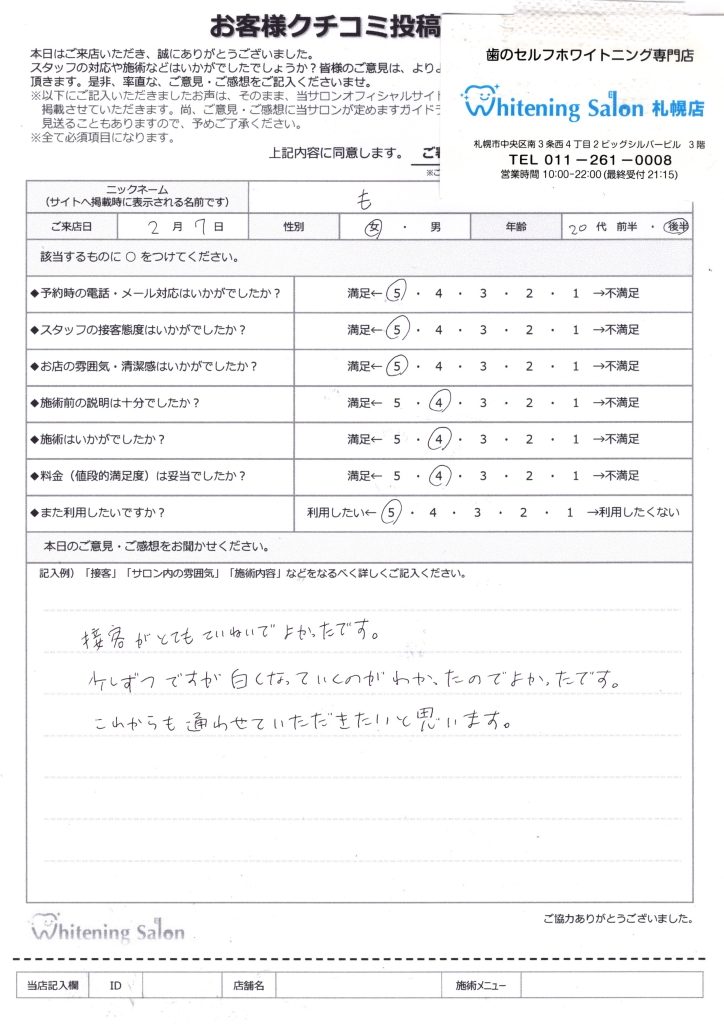 お客様クチコミ投稿
本日はご来店いただき、誠にありがとうございました。
スタッフの対応や施術などはいかがでしたでしょうか？皆様のご意見は、よりよ
頂きます。是非、率直な、ご意見・ご感想をご記入くださいませ。
※以下にご記入いただきましたお声は、そのまま、当サロンオフィシャルサイト
掲載させていただきます。尚、ご意見・ご感想に当サロンが定めますガイドラ
見送ることもありますので、予めご了承ください。
※全て必須項目になります。
上記内容に同意します。
歯のセルフホワイトニング専門店
Whitening Salon 札幌店
札幌市中央区南3条西4丁目2ビッグシルバービル 3階
TEL 011-261-0008
営業時間 10:00-22:00(最終受付 21:15)
ニックネーム
(サイトへ掲載時に表示される名前です)
も
ご来店日 2 月 7 日 性別 女 ・ 男 年齢 20 代 前半 ・ 後半
該当するものに ○ をつけてください。
◆予約時の電話・メール対応はいかがでしたか？ 満足← 5 ・ 4 ・ 3 ・ 2 ・ 1 →不満足
◆スタッフの接客態度はいかがでしたか？ 満足← 5 ・ 4 ・ 3 ・ 2 ・ 1 →不満足
◆お店の雰囲気・清潔感はいかがでしたか？ 満足← 5 ・ 4 ・ 3 ・ 2 ・ 1 →不満足
◆施術前の説明は十分でしたか？ 満足← 5 ・ 4 ・ 3 ・ 2 ・ 1 →不満足
◆施術はいかがでしたか？ 満足← 5 ・ 4 ・ 3 ・ 2 ・ 1 →不満足
◆料金（値段的満足度）は妥当でしたか？ 満足← 5 ・ 4 ・ 3 ・ 2 ・ 1 →不満足
◆また利用したいですか？ 利用したい← 5 ・ 4 ・ 3 ・ 2 ・ 1 →利用したくない
本日のご意見・ご感想をお聞かせください。
記入例）「接客」「サロン内の雰囲気」「施術内容」などをなるべく詳しくご記入ください。
接客がとてもていねいでよかったです。
少しずつですが白くなっていくのがわかったのでよかったです。
これからも通わせていただきたいと思います。
Whitening Salon
ご協力ありがとうございました。
当店記入欄 ID 店舗名 施術メニュー